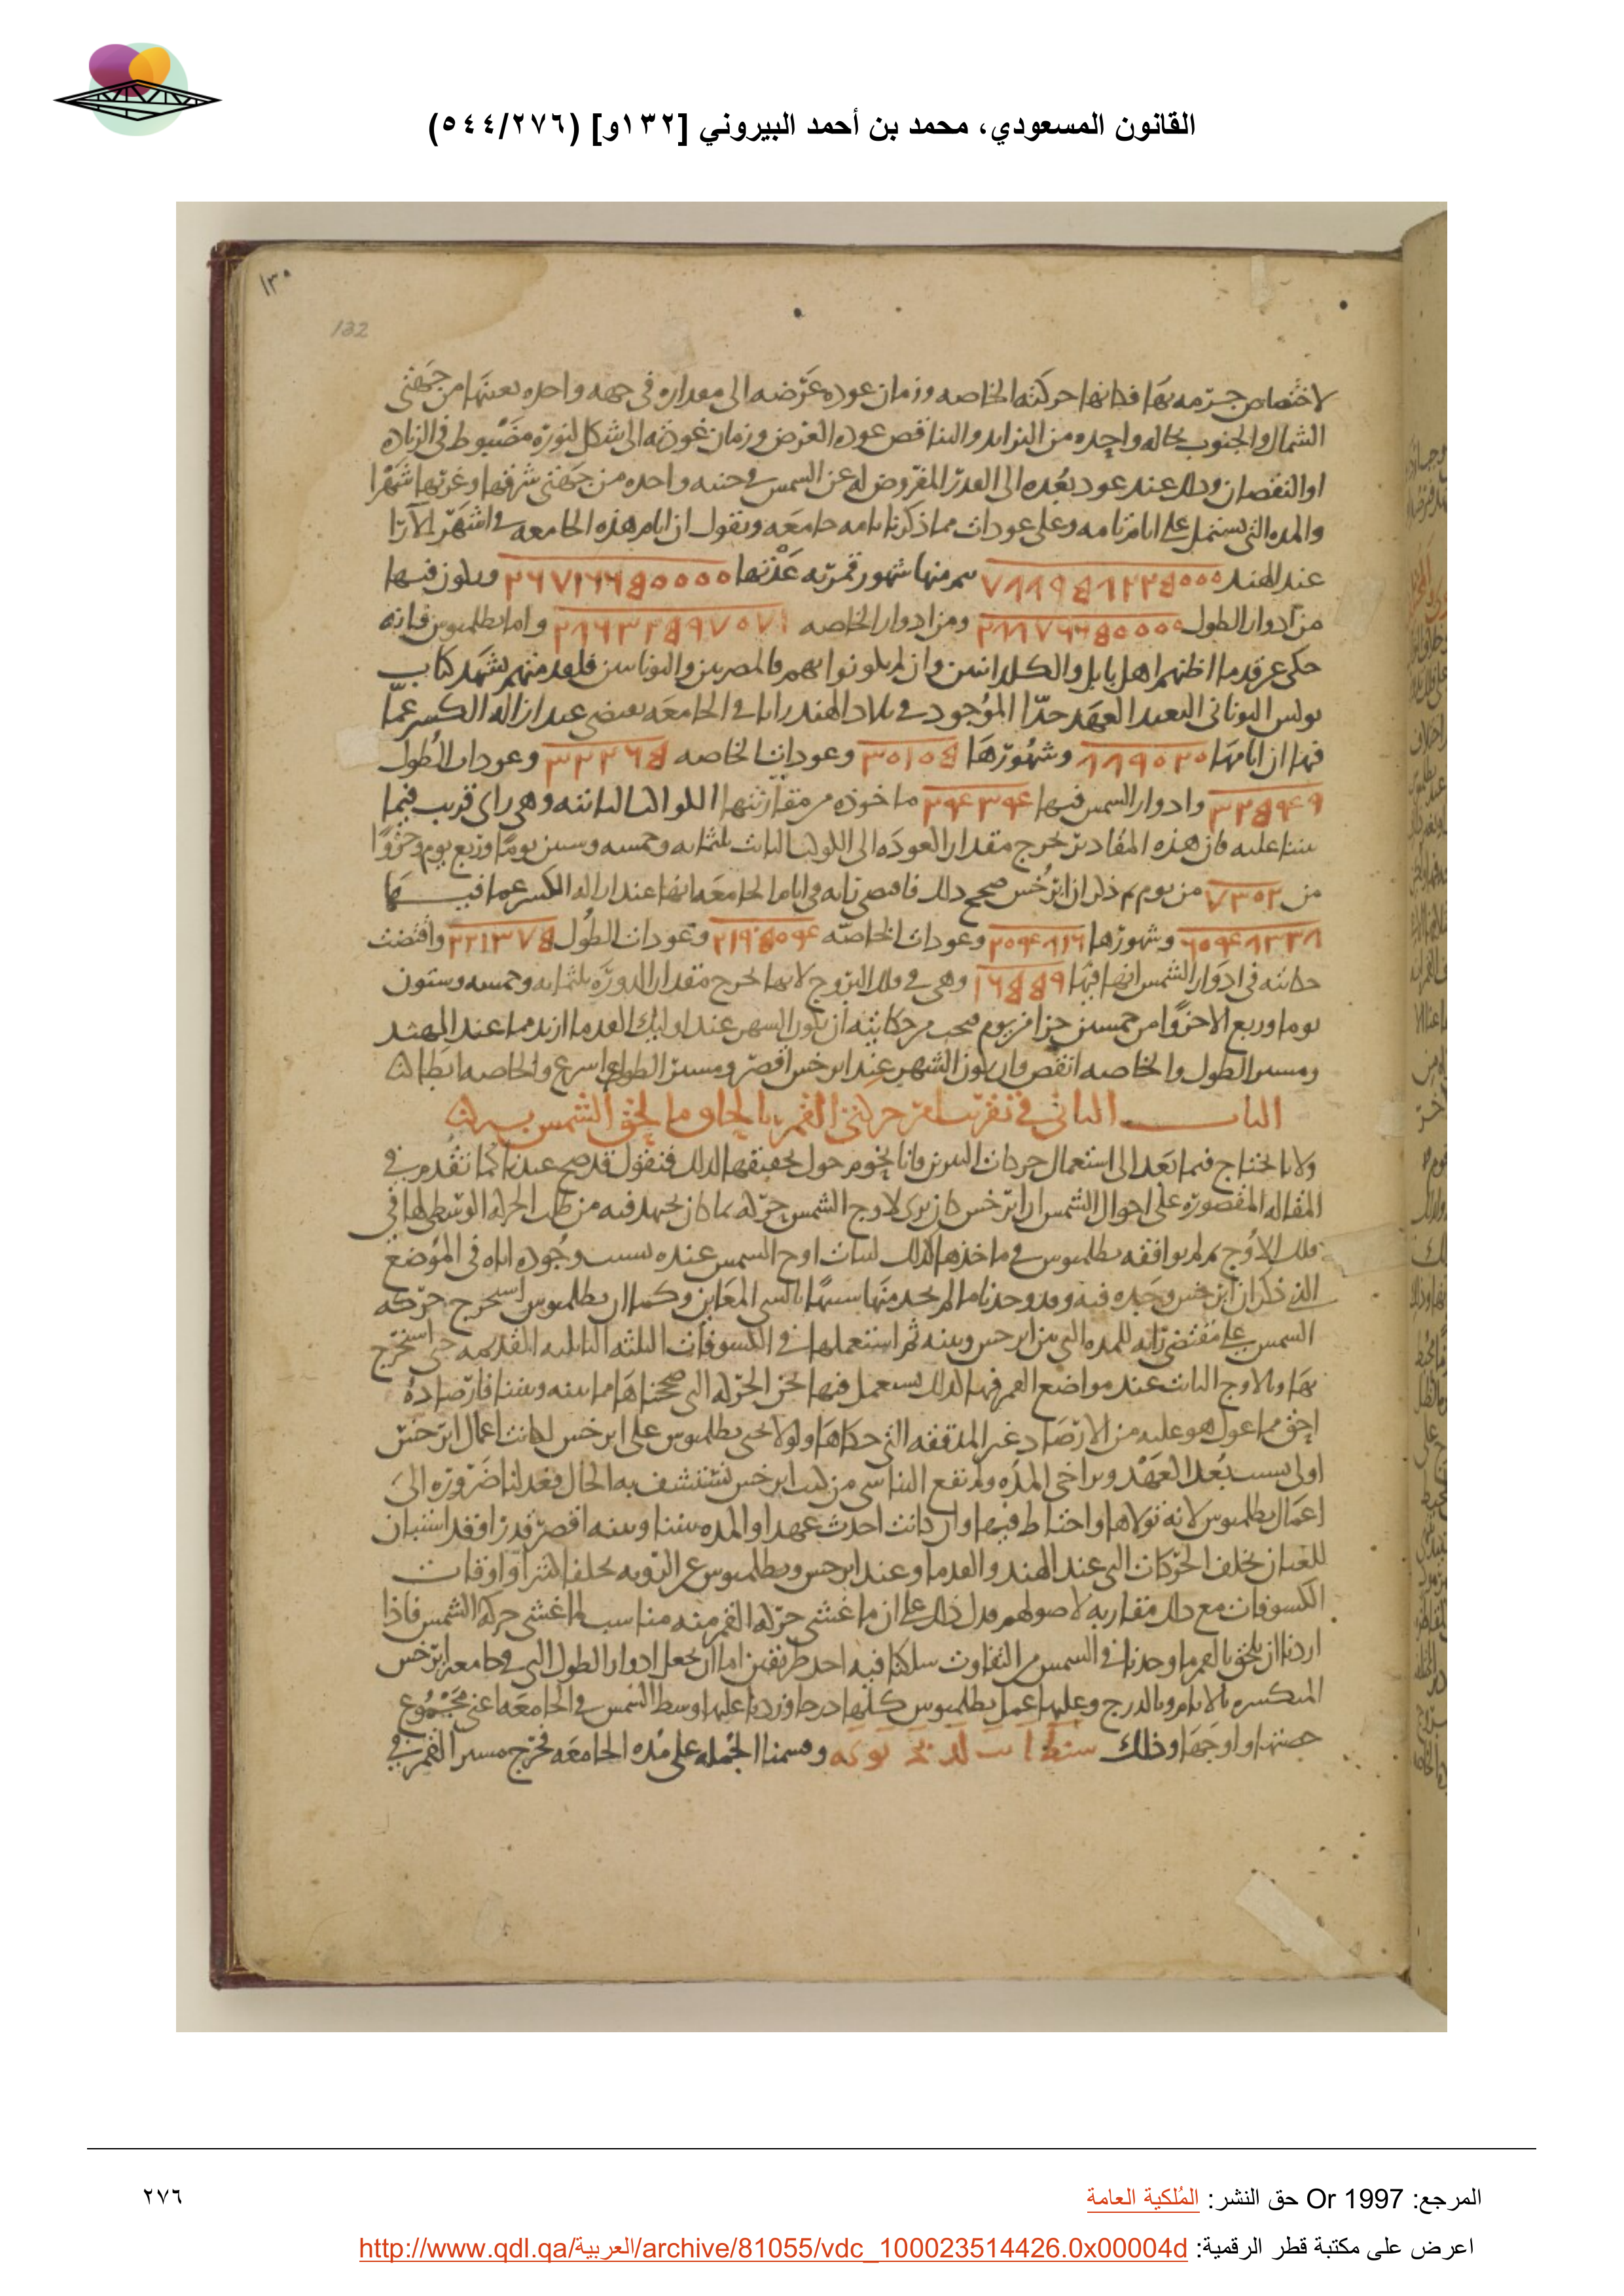 القانون المسعودي، محمد بن أحمد البيروني [١٣٢و] (٥٤٤/٢٧٦)
١٣٠
132
لاختصاص جرمه بها فكانها حركته الخاصه وزمان عوده عرضه الى مقداره فى جهه واحده بعينها من جهتى
الشمال والجنوب بحاله واحده من التزايد والتناقص عوده العرض وزمان عودته الى شكل لنوره مضبوط فى الزياده
او النقصان وذلك عند عود بعده الى القدر المفروض له عن الشمس فى جنبه واحده من جهتى شرقها وغربها شهرا
والمده التى تشتمل على ايام تامه وعلى عودات مما ذكرنا تامه جامعه ونقول ان ايام هذه الجامعه فى اشهر الارا
عند الهند منها شهور قمريه عدتها ويكون فيها
من ادوار الطول ومن ادوار الخاصه واما بطلميوس فانه
حكى عن قدما اظنهم اهل بابل والكلدانيين وان لم يكونوا بهم فالمصريين واليونانيين فلعد منهم شهد كتاب
بولس اليونانى البعيد العهد جدا الموجود فى بلاد الهند رايا فى الجامعه يقتضى عند ازاله الكسر عما
فيها ان ايامها وشهورها وعودات الخاصه وعودات الطول
وادوار الشمس فيها ماخوذه من مقارنتها الكواكب الثابته وهى راى قريب فيما
بيننا عليه فان هذه المقادير تخرج مقدار العوده الى الكوكب الثابت ثلثمايه وخمسه وستين يوما وربع يوم وجزوا
من من يوم ثم ذكر ان ابرخس صحح ذلك فاقتضى رايه فى ايام الجامعه انها عند ازاله الكسر عما فيها
وشهورها وعودات الخاصه وعودات الطول واقتضت
حكايته فى ادوار الشمس انها فيها وهى فى فلك البروج لانها تخرج مقدار الدوره ثلثمايه وخمسه وستون
يوما وربع الا جزوا من خمسين جزا من يوم فيجب من حكايته ان يكون الشهر عند اوليك القدما ازيد مما عند الهند
ومسير الطول والخاصه انقص وان يكون الشهر عند ابرخس اقصر ومسير الطول اسرع والخاصه ابطا
الباب الثانى فى تقريب امر حركتى القمر بالحاق ما لحق الشمس
ولانا نحتاج فيما بعد الى استعمال حركات النيرين فانا نحوم حول تحقيقها لذلك فنقول قد صح عندنا كما تقدم فى
المقاله المقصوره على احوال الشمس ان ابرخس كان يرى لاوج الشمس حركه بما كان يجتهد فيه من طلب الحركه الوسطى لها فى
فلك الاوج ثم لم يوافقه بطلميوس فى ماخذها لذلك لثبات اوج الشمس عنده بسبب وجوده اياه فى الموضع
الذى ذكر ان ابرخس وجده فيه وقد وجدنا ما لم يجد منها شبيها بالشى المعاين وكما ان بطلميوس استخرج حركه
الشمس على مقتضى رايه للمده التى بين ابرخس وبينه ثم استعملها فى الكسوفات الثلثه البابليه القديمه حتى استخرج
بها وبالاوج الثابت عنده مواضع القمر فيها كذلك نستعمل فيها نحن الحركه التى صححناها مما بينه وبيننا فارصاده
احق مما عول هو عليه من الارصاد غير المدققه التى حكاها ولولا على ابرخس لكانت اعمال ابرخس
اولى بسبب بعد العهد وتراخى المده ولم تقع الينا شى من كتب ابرخس نستشف به الحال فعدلنا ضروره الى
اعمال بطلميوس لانه تولاها واحتاط فيها وان كانت احدث عهدا والمده بيننا وبينه اقصر قدرا وقد استبان
للعيان تخلف الحركات التى عند الهند والقدما وعند ابرخس وبطلميوس عن الرويه واوقات
الكسوفات مع ذلك مقاربه لاصولهم فدل ذلك على ان ما غشى حركه القمر منه مناسب لما غشى حركه الشمس فاذا
اردنا ان نلحق بالقمر ما وجدنا فى الشمس من التفاوت سلكنا فيه احد طريقين اما ان نجعل ادوار الطول التى فى جامعه ابرخس
المنكسره بالايام وبالدرج وعليها عمل بطلميوس كلها درجا وزدنا عليها وسط الشمس فى الجامعه اعنى مجموع
حصتها واوجها وذلك وقسمنا الجمله على مده الجامعه فخرج مسير القمر فى
المرجع: Or 1997 حق النشر: المُلكية العامة
٢٧٦
اعرض على مكتبة قطر الرقمية: http://www.qdl.qa/العربية/archive/81055/vdc_100023514426.0x00004d